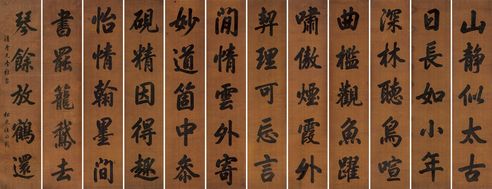 山靜似太古
日長如小年
深林聽鳥喧
曲檻觀魚躍
嘯傲煙霞外
契理可忘言
閒情雲外寄
妙道箇中參
硯精因得趣
怡情翰墨間
書罷籠鵝去
琴餘放鶴還